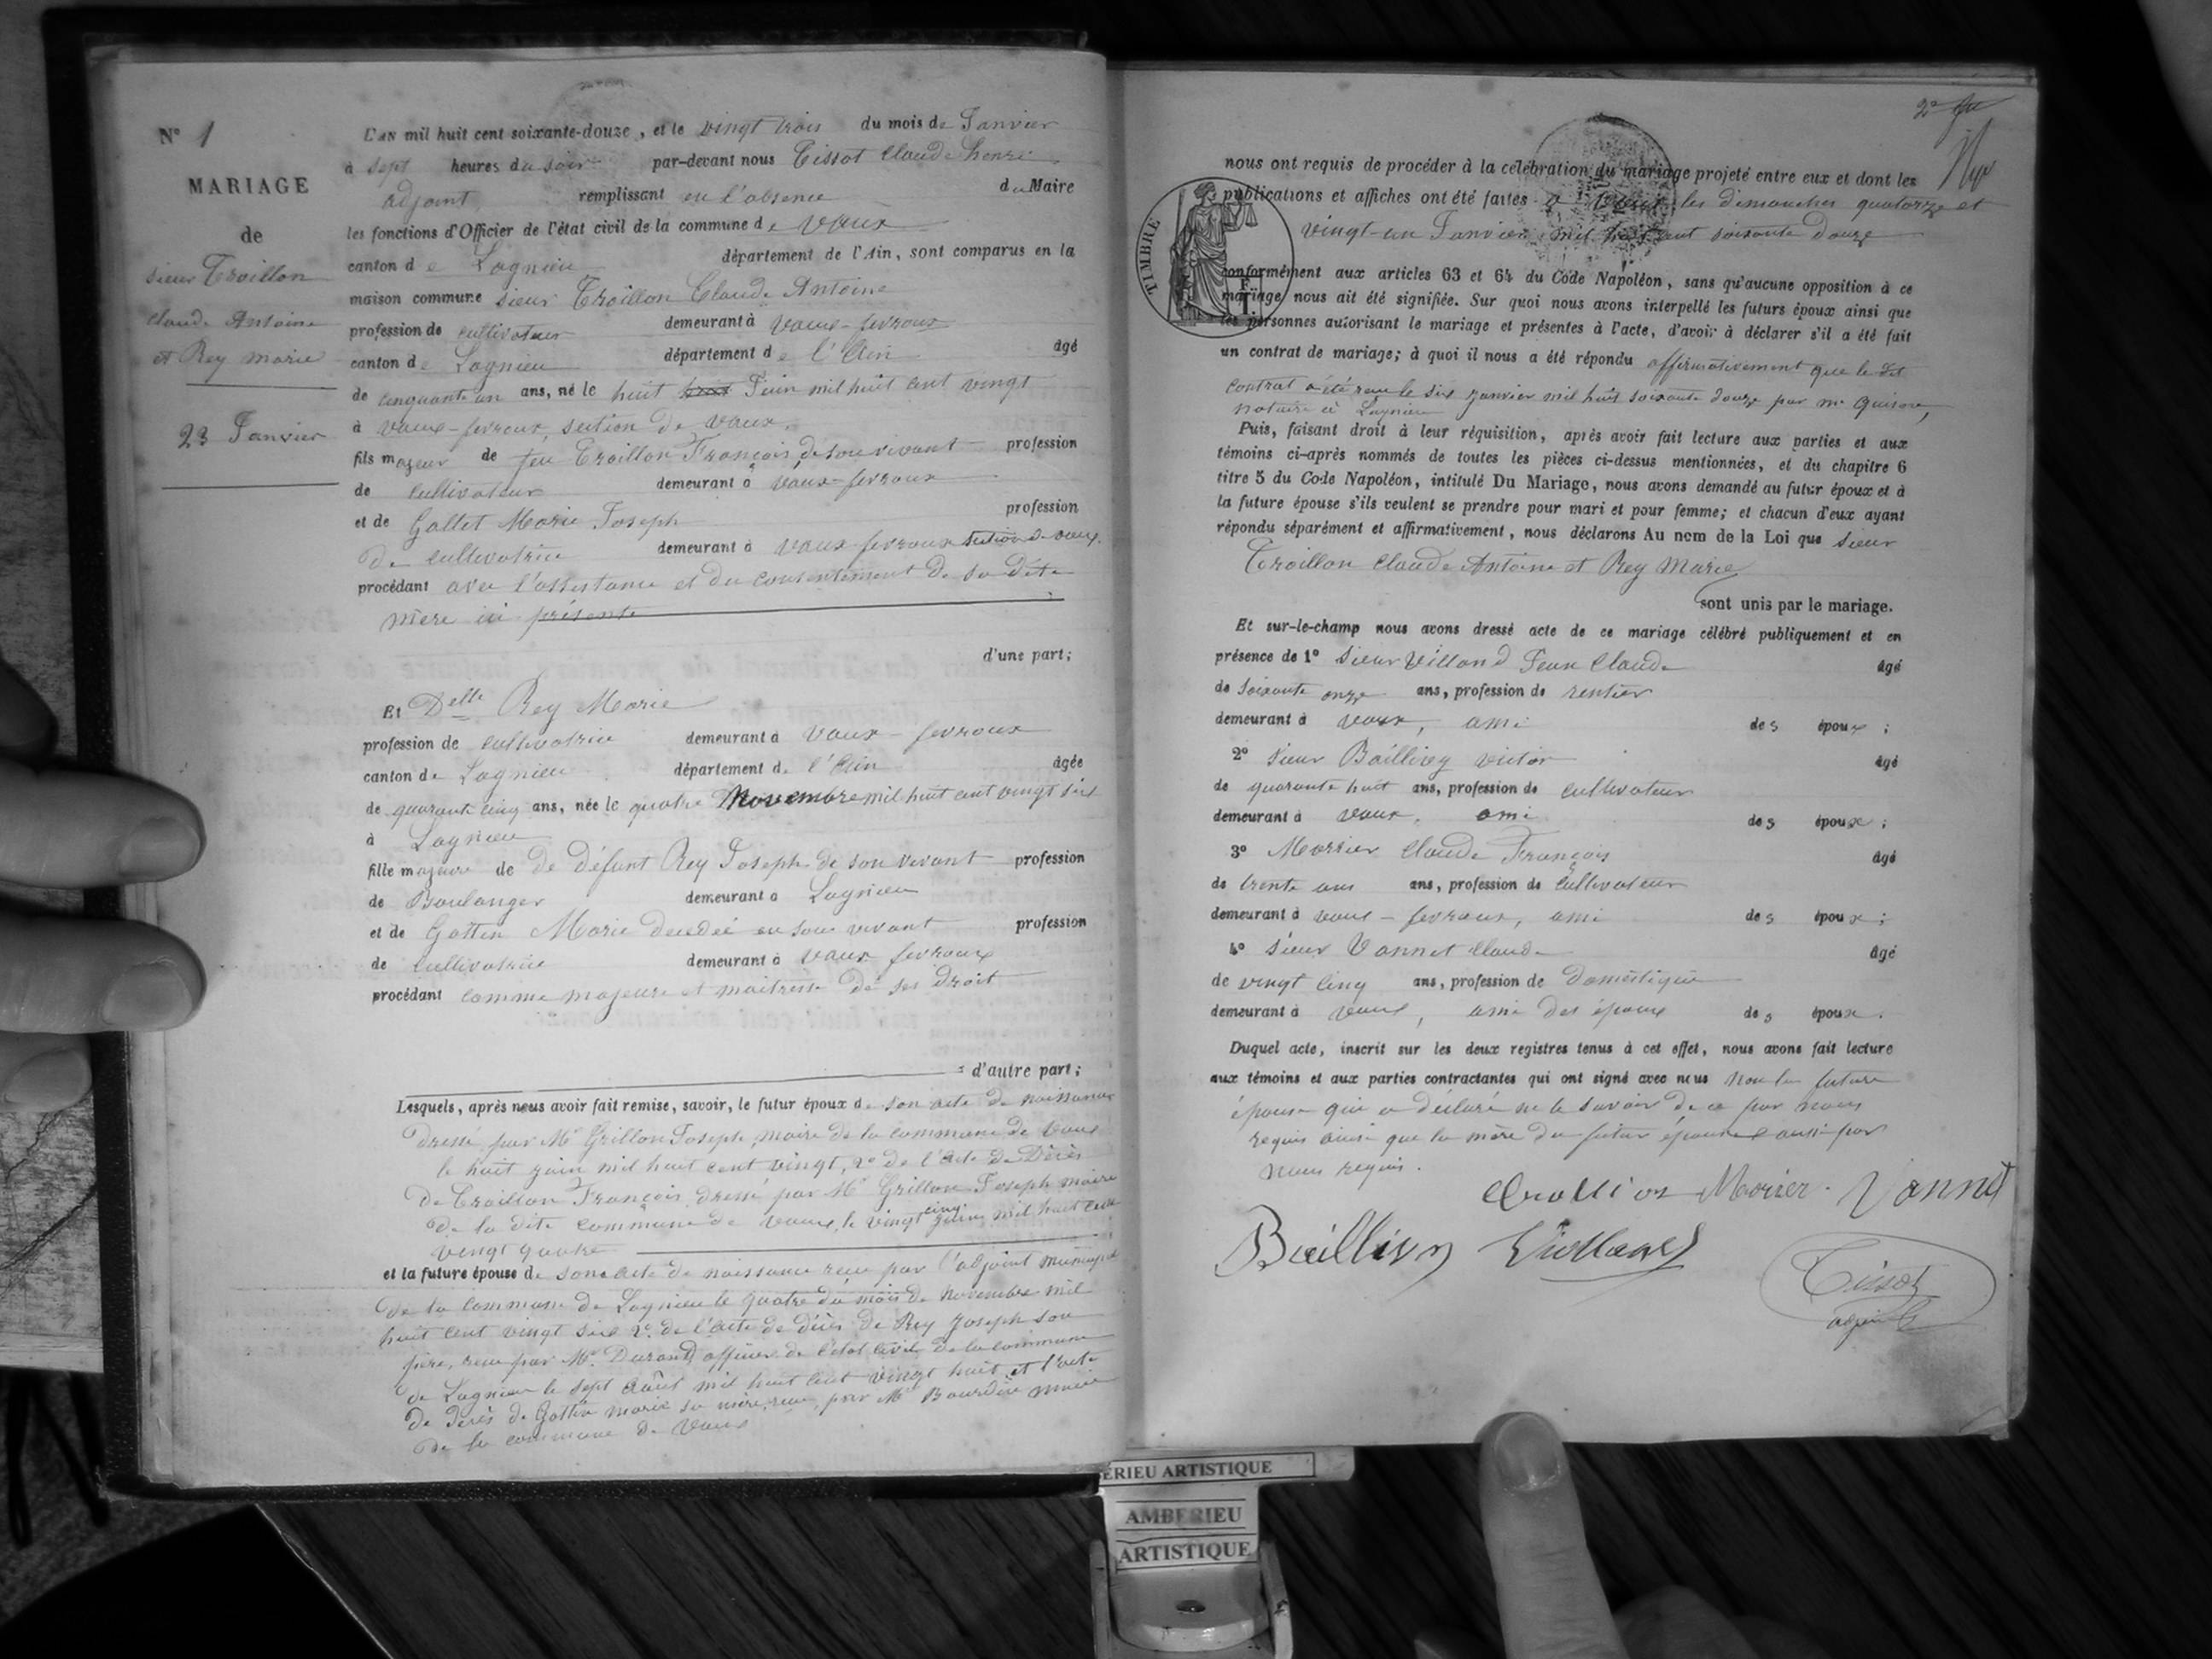 N° 1
MARIAGE
de
sieur Croillon
claude Antoine
et Rey marie
23 Janvier
L'AN mil huit cent soixante-douze, et le vingt trois du mois de Janvier
à sept heures du soir par-devant nous Tissot Claude henri
adjoint remplissant en l'absence du Maire
les fonctions d'Officier de l'état civil de la commune de Vaux
canton de Lagnieu département de l'Ain, sont comparus en la
maison commune sieur Croillon Claude Antoine
profession de cultivateur demeurant à Vaux-fevroux
canton de Lagnieu département de l'Ain âgé
de cinquante un ans, né le huit Juin mil huit cent vingt
à Vaux-fevroux, section de Vaux.
fils majeur de feu Croillon François, de son vivant profession
de cultivateur demeurant à Vaux-fevroux
et de Gallet Marie Joseph profession
de cultivatrice demeurant à Vaux-fevroux section de vaux.
procédant avec l'assistance et du consentement de sa dite
mère ici présente
d'une part;
Et Delle Rey Marie
profession de cultivatrice demeurant à Vaux-fevroux
canton de Lagnieu département de l'Ain âgée
de quarante cinq ans, née le quatre Novembre mil huit cent vingt six
à Lagnieu
fille majeure de De défunt Rey Joseph de son vivant profession
de Boulanger demeurant à Lagnieu
et de Gottin Marie décédée en son vivant profession
de cultivatrice demeurant à Vaux fevroux
procédant comme majeure et maîtresse de ses droit
d'autre part;
Lesquels, après nous avoir fait remise, savoir, le futur époux de son acte de naissance
dressé par Mr Grillon Joseph, maire de la commune de Vaux
le huit juin mil huit cent vingt, 2° de l'acte de Décès
de Croillon François dressé par Mr Grillon Joseph maire
de la dite commune de Vaux, le vingt cinq juin mil huit cent
vingt quatre
et la future épouse de son acte de naissance reçu par l'adjoint municipal
de la commune de Lagnieu le quatre du mois de Novembre mil
huit cent vingt six 2° de l'acte de décès de Rey Joseph son
père, reçu par Mr. Durand officier de l'état civil de la commune
de Lagnieu le sept Août mil huit cent vingt huit et l'acte
de décès de Gottin marie sa mère, reçu par Mr Bourdin maire
de la commune de Vaux
2e
nous ont requis de procéder à la célébration du mariage projeté entre eux et dont les
publications et affiches ont été faites à Vaux, les dimanches quatorze et
vingt-un Janvier mil huit cent soixante douze
TIMBRE
conformément aux articles 63 et 64 du Code Napoléon, sans qu'aucune opposition à ce
mariage nous ait été signifiée. Sur quoi nous avons interpellé les futurs époux ainsi que
les personnes autorisant le mariage et présentes à l'acte, d'avoir à déclarer s'il a été fait
un contrat de mariage; à quoi il nous a été répondu affirmativement que le dit
contrat a été reçu le six janvier mil huit soixante douze par me
notaire à Lagnieu
Puis, faisant droit à leur réquisition, après avoir fait lecture aux parties et aux
témoins ci-après nommés de toutes les pièces ci-dessus mentionnées, et du chapitre 6
titre 5 du Code Napoléon, intitulé Du Mariage, nous avons demandé au futur époux et à
la future épouse s'ils veulent se prendre pour mari et pour femme; et chacun d'eux ayant
répondu séparément et affirmativement, nous déclarons Au nom de la Loi que sieur
Croillon Claude Antoine et Rey Marie
sont unis par le mariage.
Et sur-le-champ nous avons dressé acte de ce mariage célébré publiquement et en
présence de 1° Sieur Villand Jean Claude âgé
de soixante onze ans, profession de rentier
demeurant à Vaux, ami des époux;
2° sieur Baillivy victor âgé
de quarante huit ans, profession de cultivateur
demeurant à Vaux, ami des époux;
3° Morrier Claude François âgé
de trente ans ans, profession de cultivateur
demeurant à Vaux-fevroux, ami des époux;
4° sieur Vannet Claude âgé
de vingt cinq ans, profession de domestique
demeurant à Vaux, ami des époux des époux.
Duquel acte, inscrit sur les deux registres tenus à cet effet, nous avons fait lecture
aux témoins et aux parties contractantes qui ont signé avec nous non la future
épouse qui a déclaré ne le savoir de ce par nous
requis ainsi que la mère du futur époux aussi par
nous requis.
Croillion Morier Vannet
Baillivy
Tissot
adjoint
ÉRIEU ARTISTIQUE
AMBERIEU
ARTISTIQUE